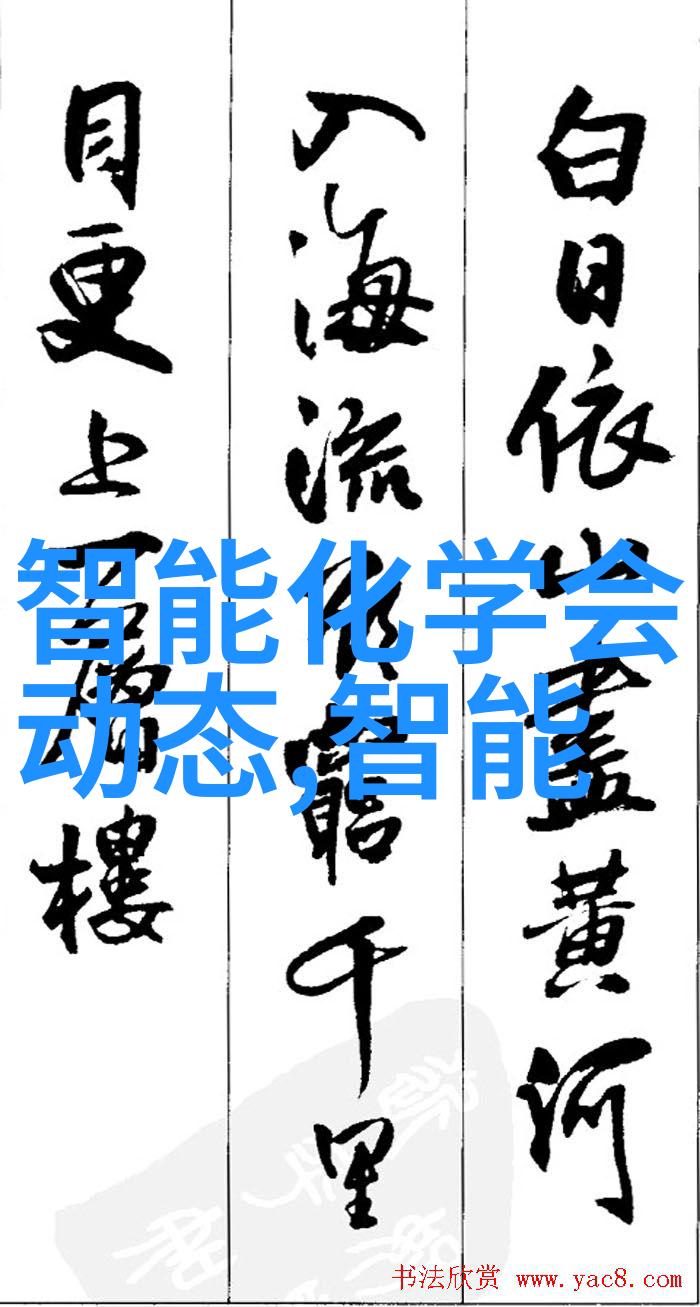 白日依山尽黄河
入海流欲窮千里
目更上一层樓
智能化学会
动态,智能
书法欣赏 www.yac8.com